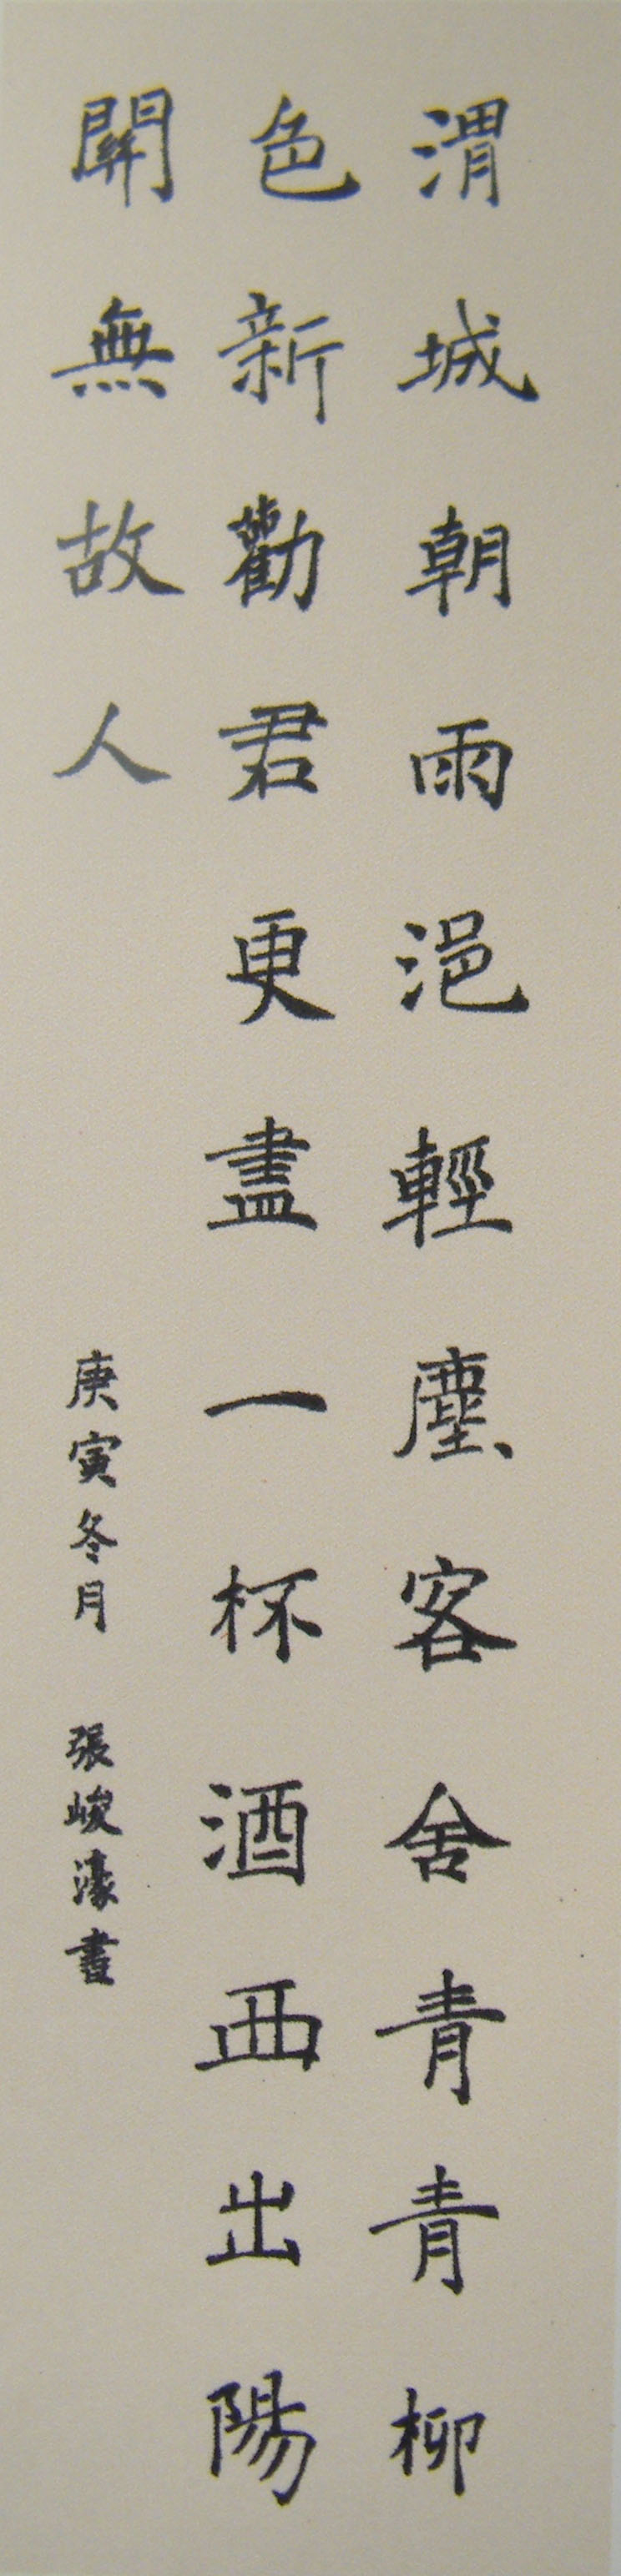 渭城朝雨浥輕塵客舍青青柳
色新勸君更盡一杯酒西出陽
關無故人
庚寅冬月 張峻濠書